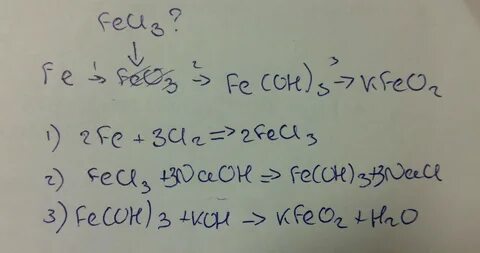 FeCl3?
Fe 1→ FeO3 2→ Fe(OH)3 3→ KFeO2
1) 2Fe + 3Cl2 => 2FeCl3
2) FeCl3 + 3NaOH => Fe(OH)3 + 3NaCl
3) Fe(OH)3 + KOH → KFeO2 + H2O